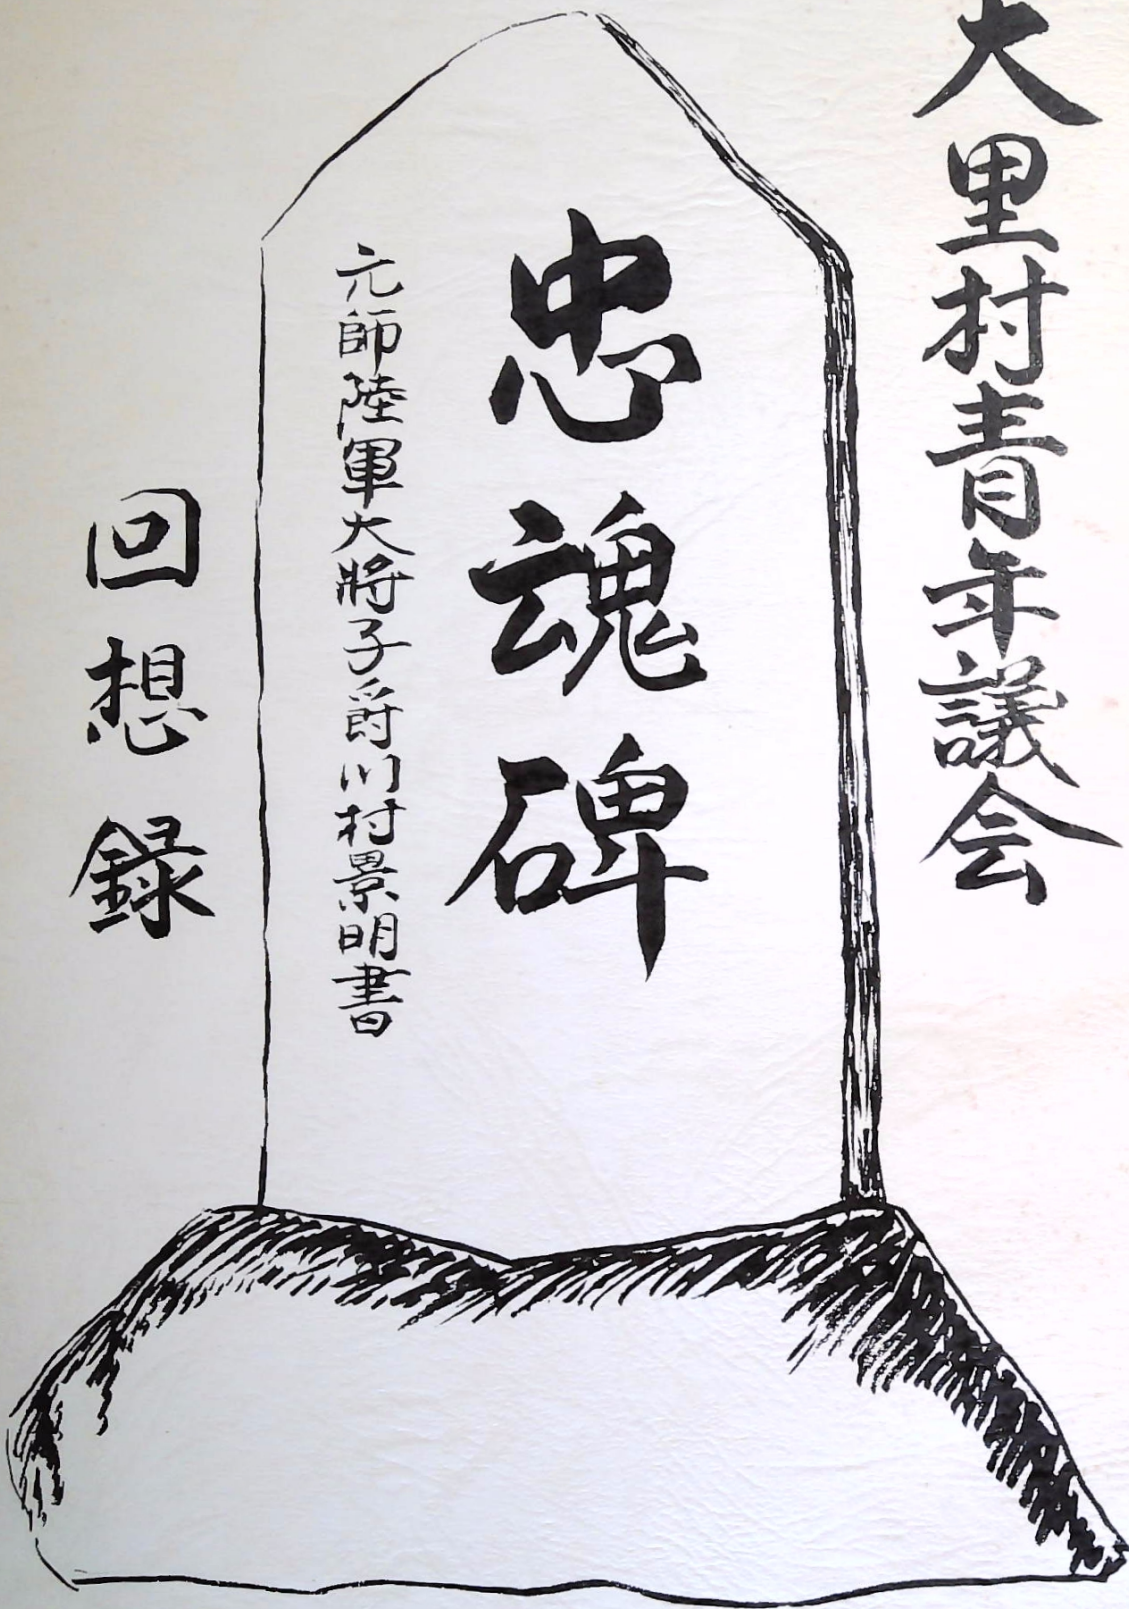 大里村青年議会
忠魂碑
元師陸軍大将子爵川村景明書
回想録